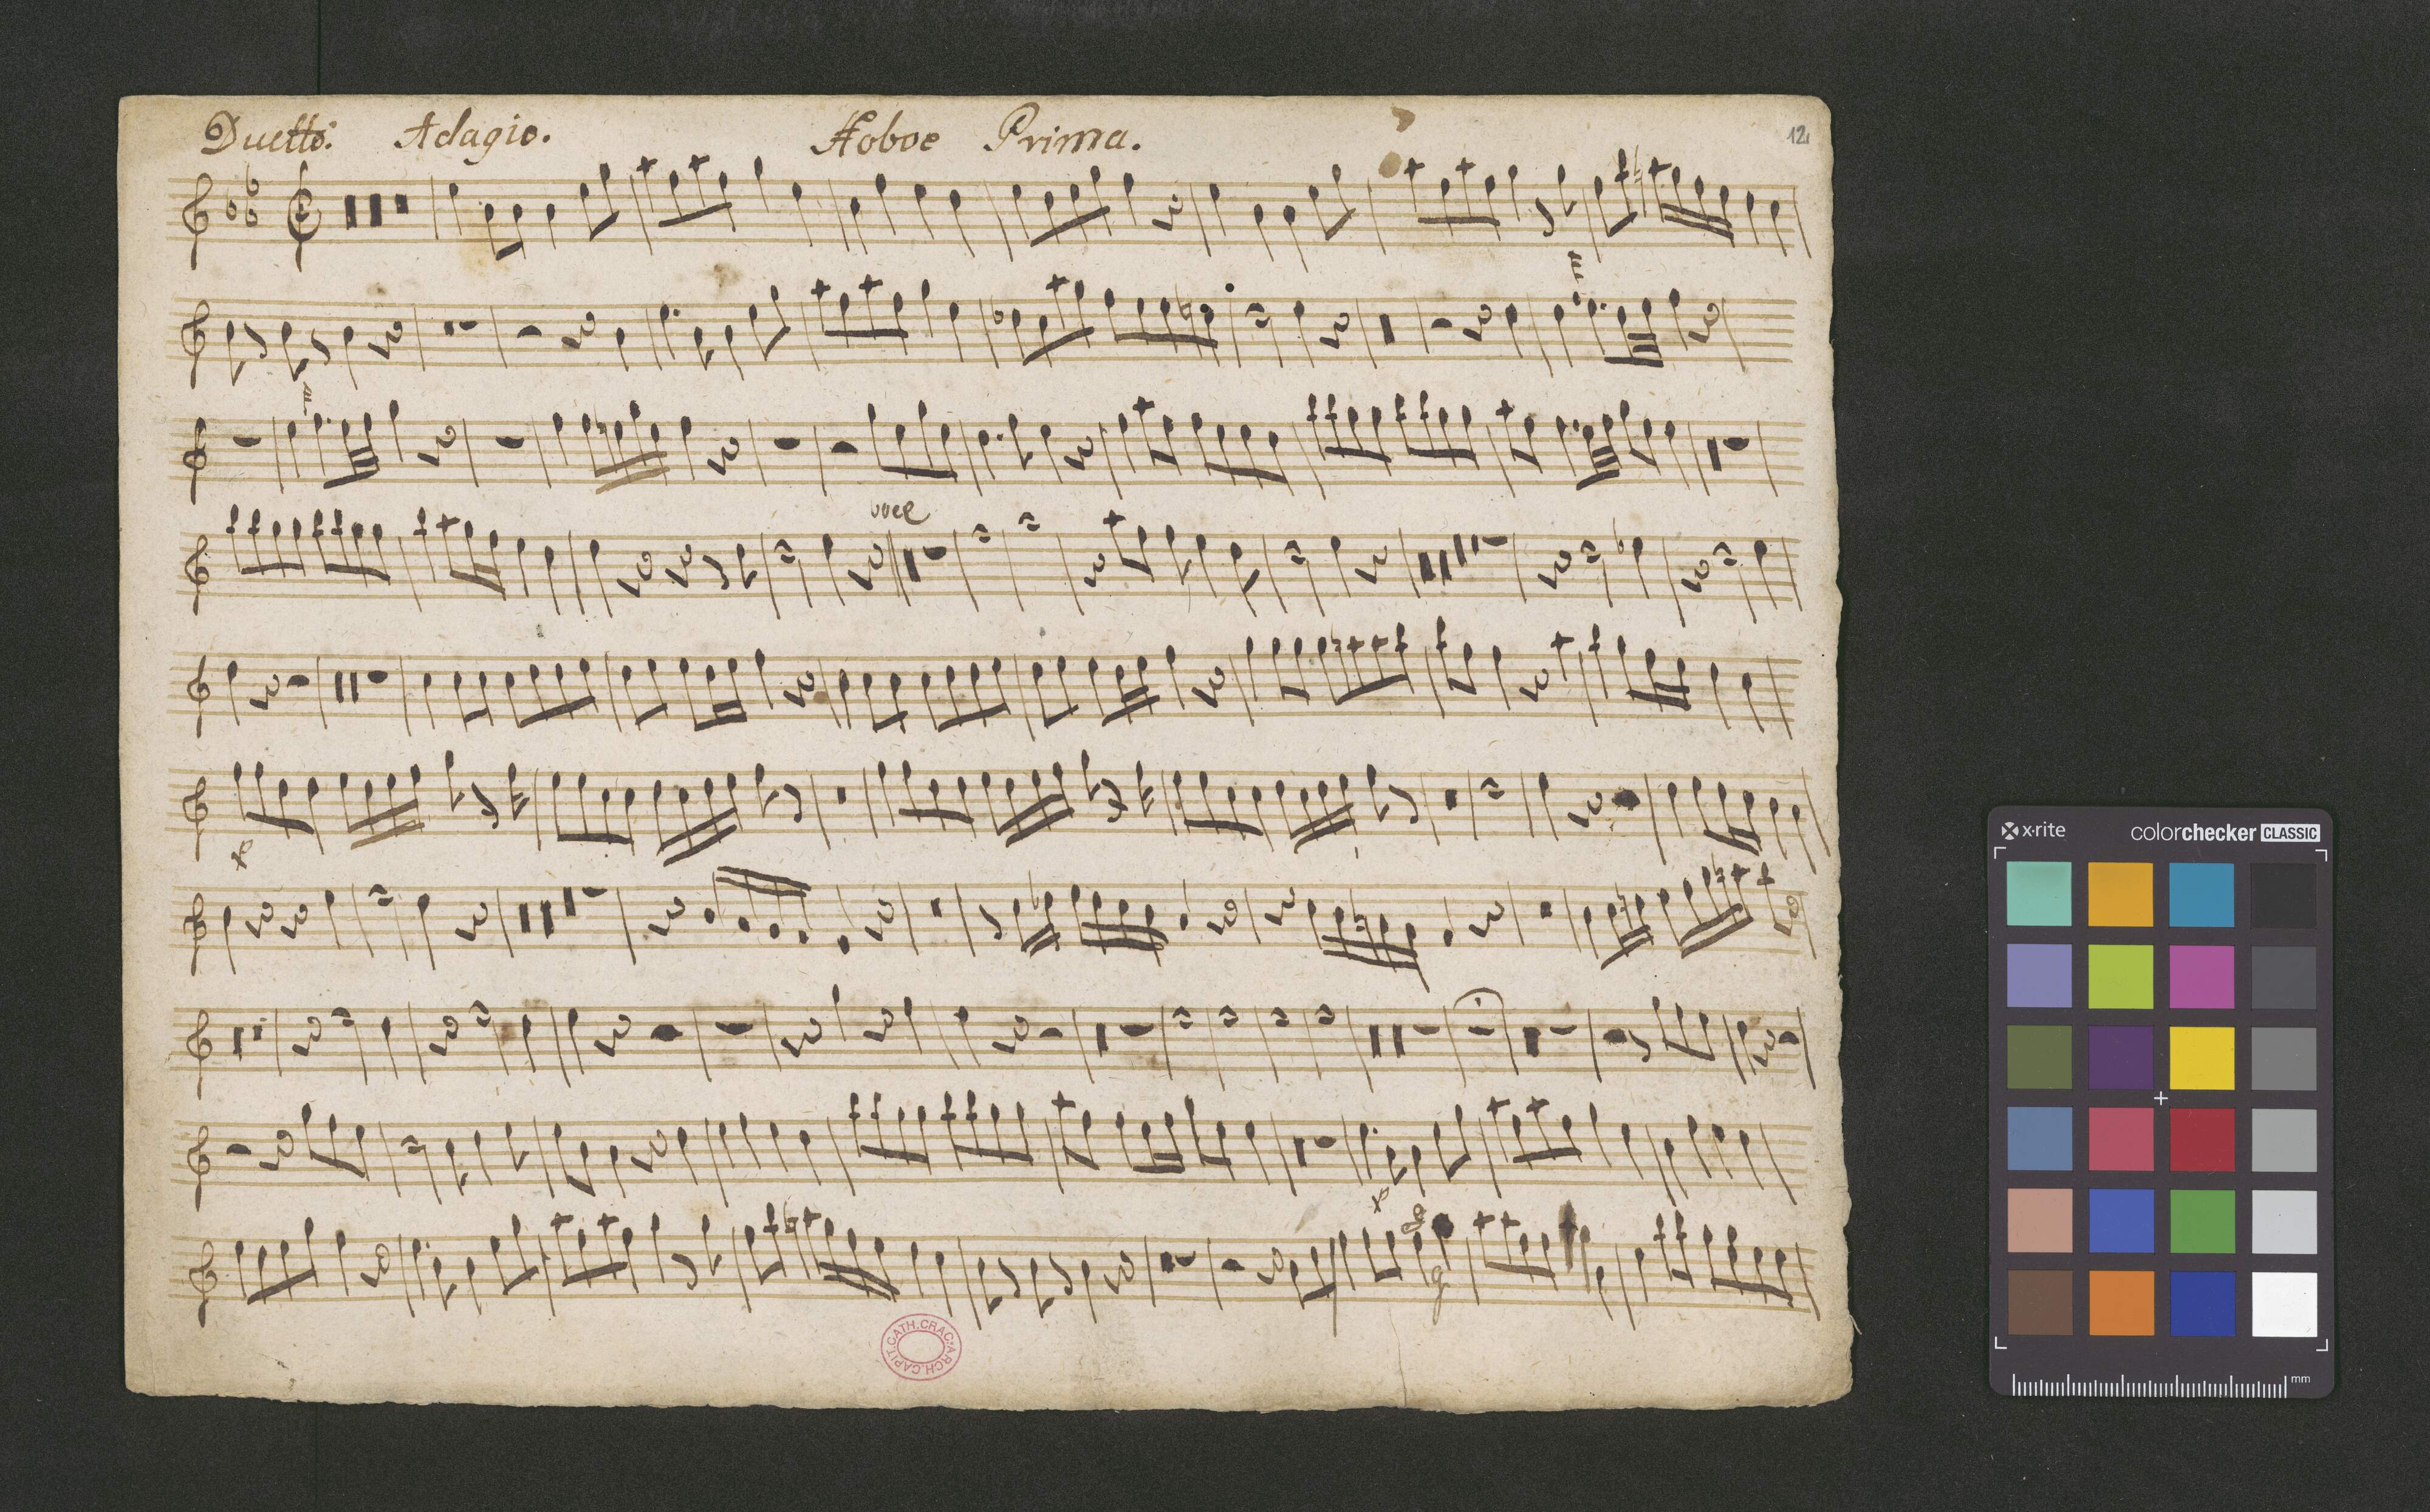 Duetto. Adagio. Hoboe Prima. 12
voce
ARCH.CAPIT.CATH.CRAC.
x-rite colorchecker CLASSIC
mm